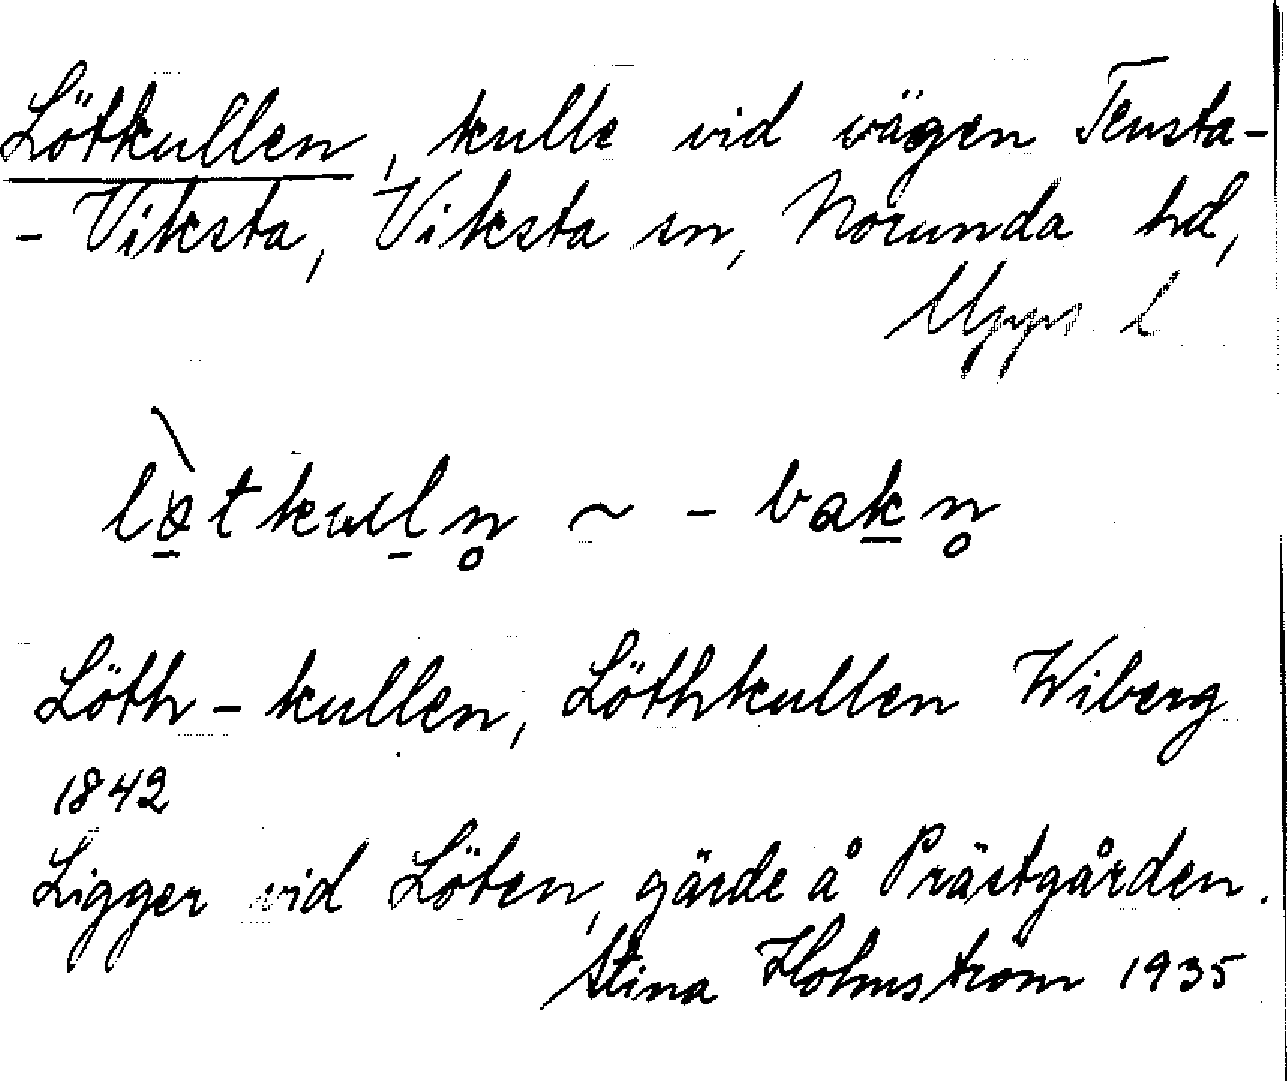 Lötkullen, kulle vid vägen Tensta-
- Viksta, Viksta sn, Norunda hd,
Upps l
Löth - kullen, Löthkullen Wiberg
1842
Ligger vid Löten, gärde å Prästgården.
Stina Holmström 1935